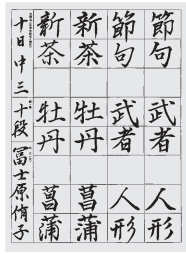 節句武者人形
節句武者人形
新茶牡丹菖蒲
新茶牡丹菖蒲
十日中三十段冨士原侑子